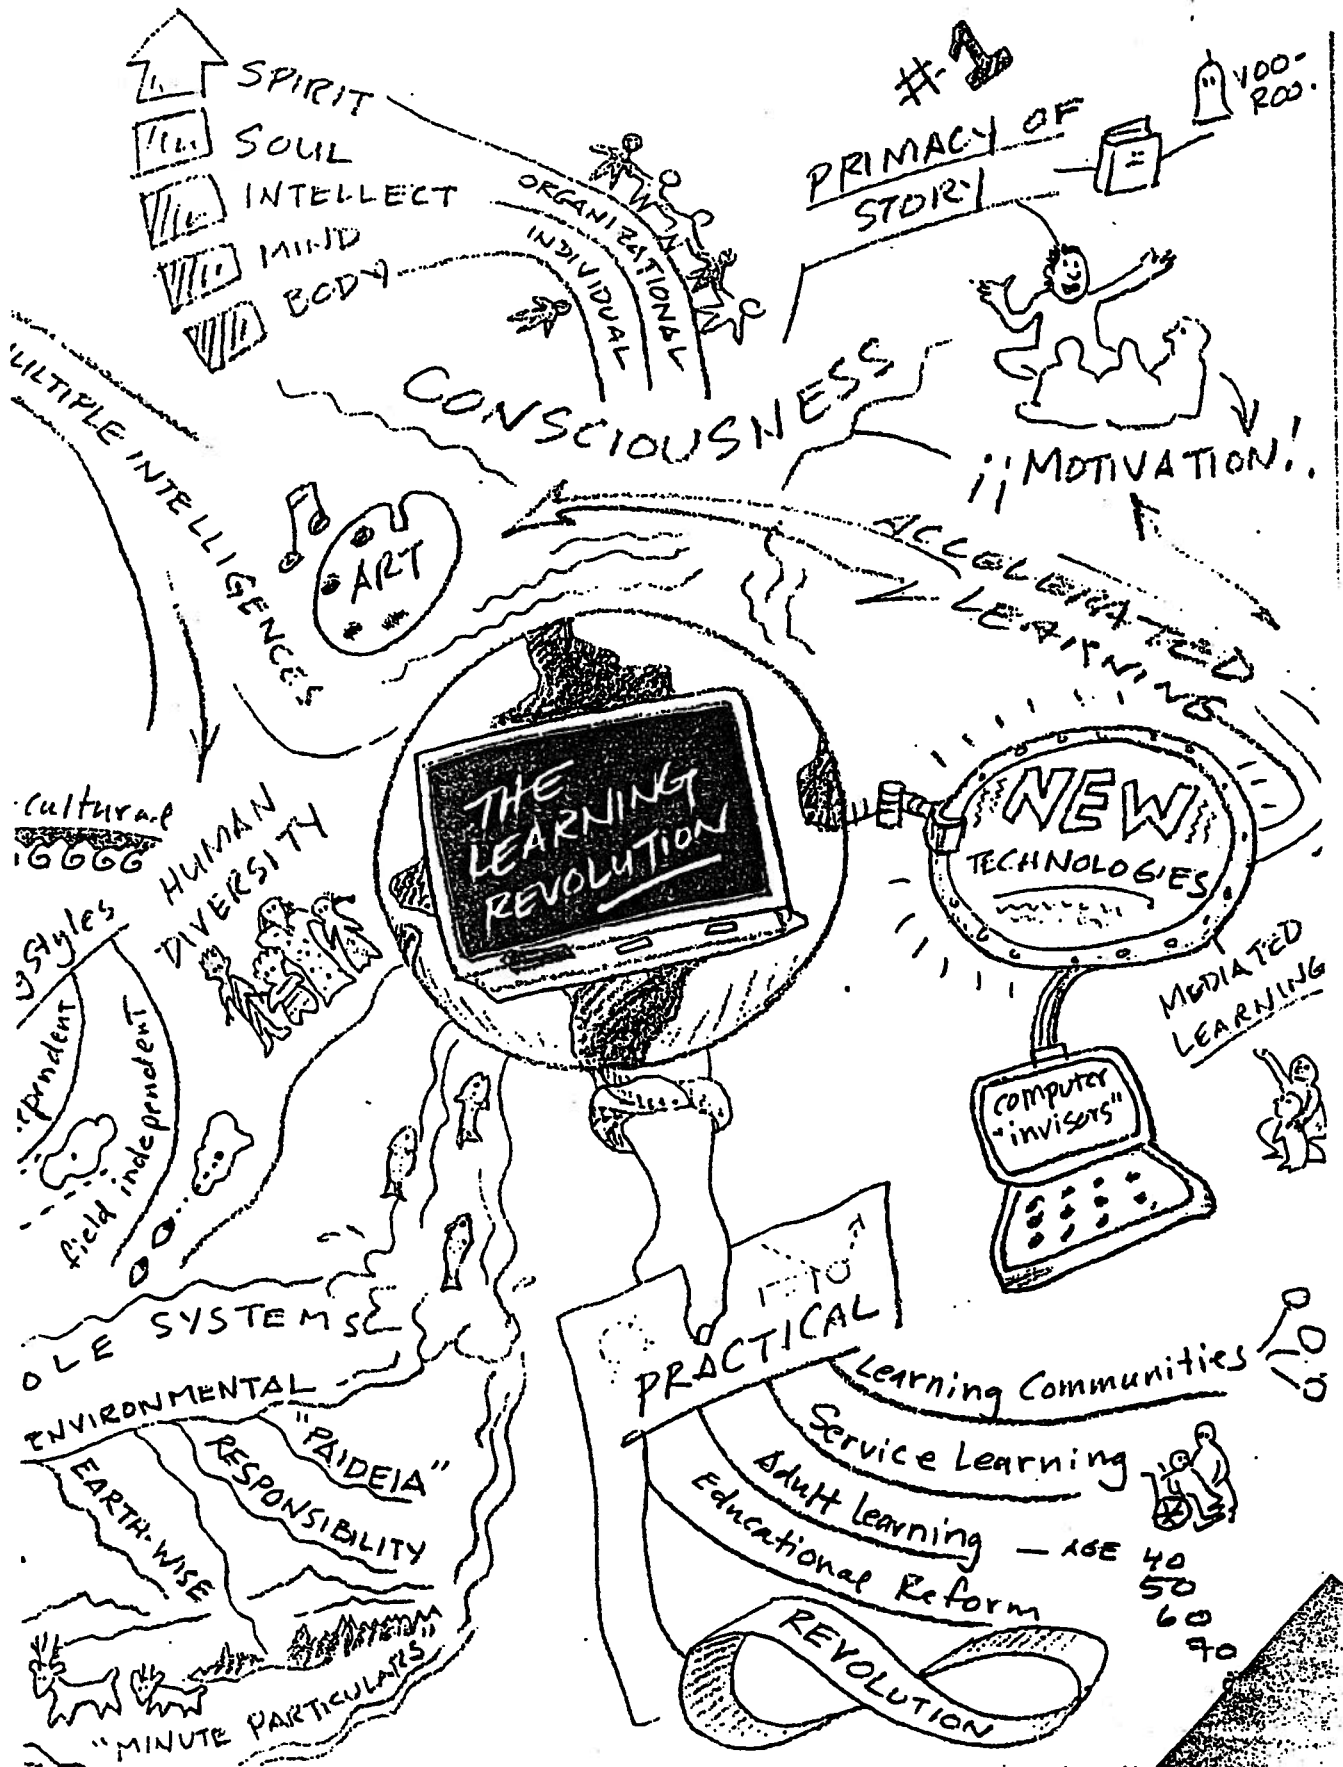 SPIRIT
SOUL
INTELLECT
MIND
BODY
ORGANIZATIONAL
INDIVIDUAL
CONSCIOUSNESS
#1
PRIMACY OF
STORY
VOO-
ROO.
¡¡MOTIVATION!.
ULTIPLE INTELLIGENCES
ART
ACCELERATED
LEARNING
THE
LEARNING
REVOLUTION
NEW
TECHNOLOGIES
MEDIATED
LEARNING
computer
"invisors"
cultural
HUMAN
DIVERSITY
gStyles
ependent
field independent
OLE SYSTEMS
ENVIRONMENTAL
"PAIDEIA"
RESPONSIBILITY
EARTH-WISE
"MINUTE PARTICULARS"
PRACTICAL
Learning Communities
Service Learning
Adult Learning — AGE 40
50
60
70
Educational Reform
REVOLUTION